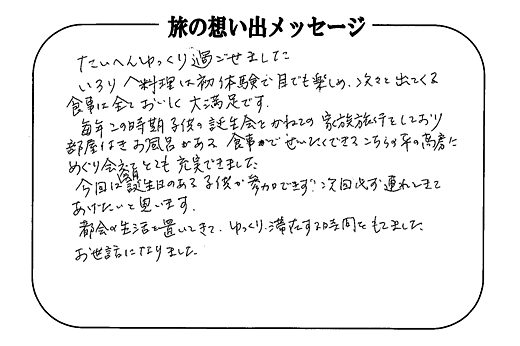 旅の想い出メッセージ
たいへんゆっくり過ごせました
いろり料理は初体験で目でも楽しめ、次々と出てくる
食事は全ておいしく大満足です。
毎年この時期子供の誕生会とかねての家族旅行をしており
部屋付きお風呂がある 食事がぜいたくできるこちらの平の高房に
めぐり会えてとても充実できました。
今回は誕生日のある子供が参加できず、次回必ず連れてきて
あげたいと思います。
都会の生活を置いてきて、ゆっくり滞在する時間をもてました
お世話になりました。